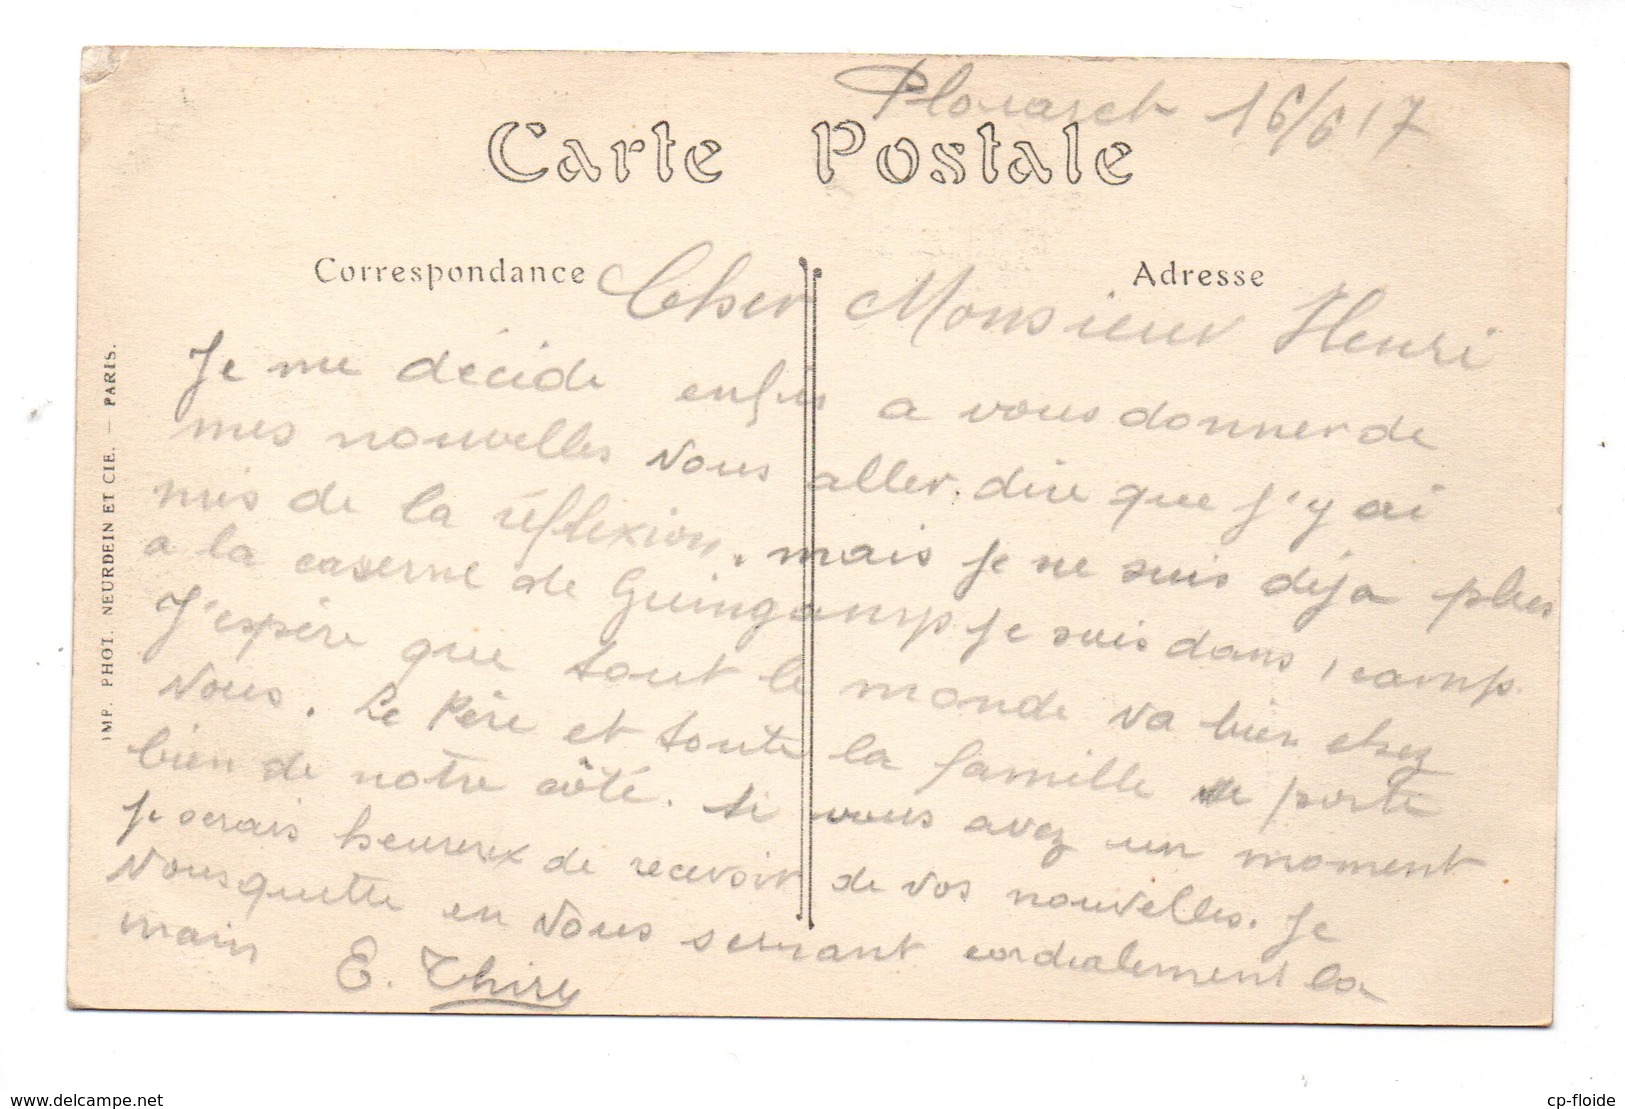 Plouaret 16/6 17
Carte Postale
Correspondance
Adresse
Cher Monsieur Henri
Je me décide enfin a vous donner de
mes nouvelles Vous aller dire que j'y ai
mis de la réflexion. mais je ne suis déja plus
a la caserne de Guingamp je suis dans 1 camp.
J'espère que tout le monde va bien chez
Vous. Le Père et toute la famille se porte
bien de notre côté. Si vous avez un moment
je serais heureux de recevoir de vos nouvelles. Je
Vous quitte en Vous serrant cordialement la
main E. Thiry
IMP. PHOT. NEURDEIN ET CIE. — PARIS.
www.delcampe.net
cp-floide